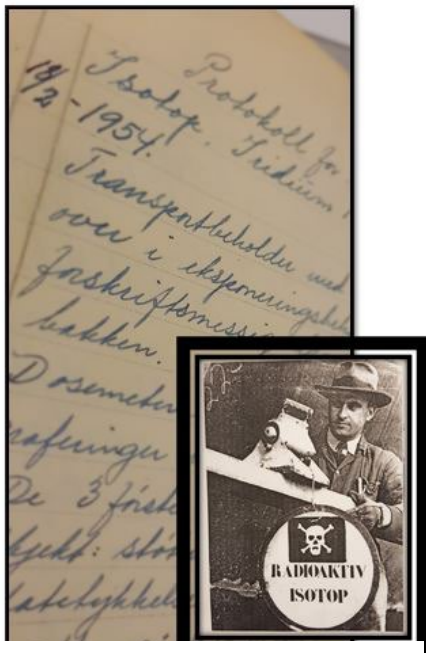 Protokoll for
Isotop. Iridium
18/2-1954.
Transportbeholder med
over i eksponeringsbehol
forskriftsmessig
bakken.
Dosemeter
raferinger
De 3 første
bjekt: stø
latetykkelse
RADIOAKTIV
ISOTOP